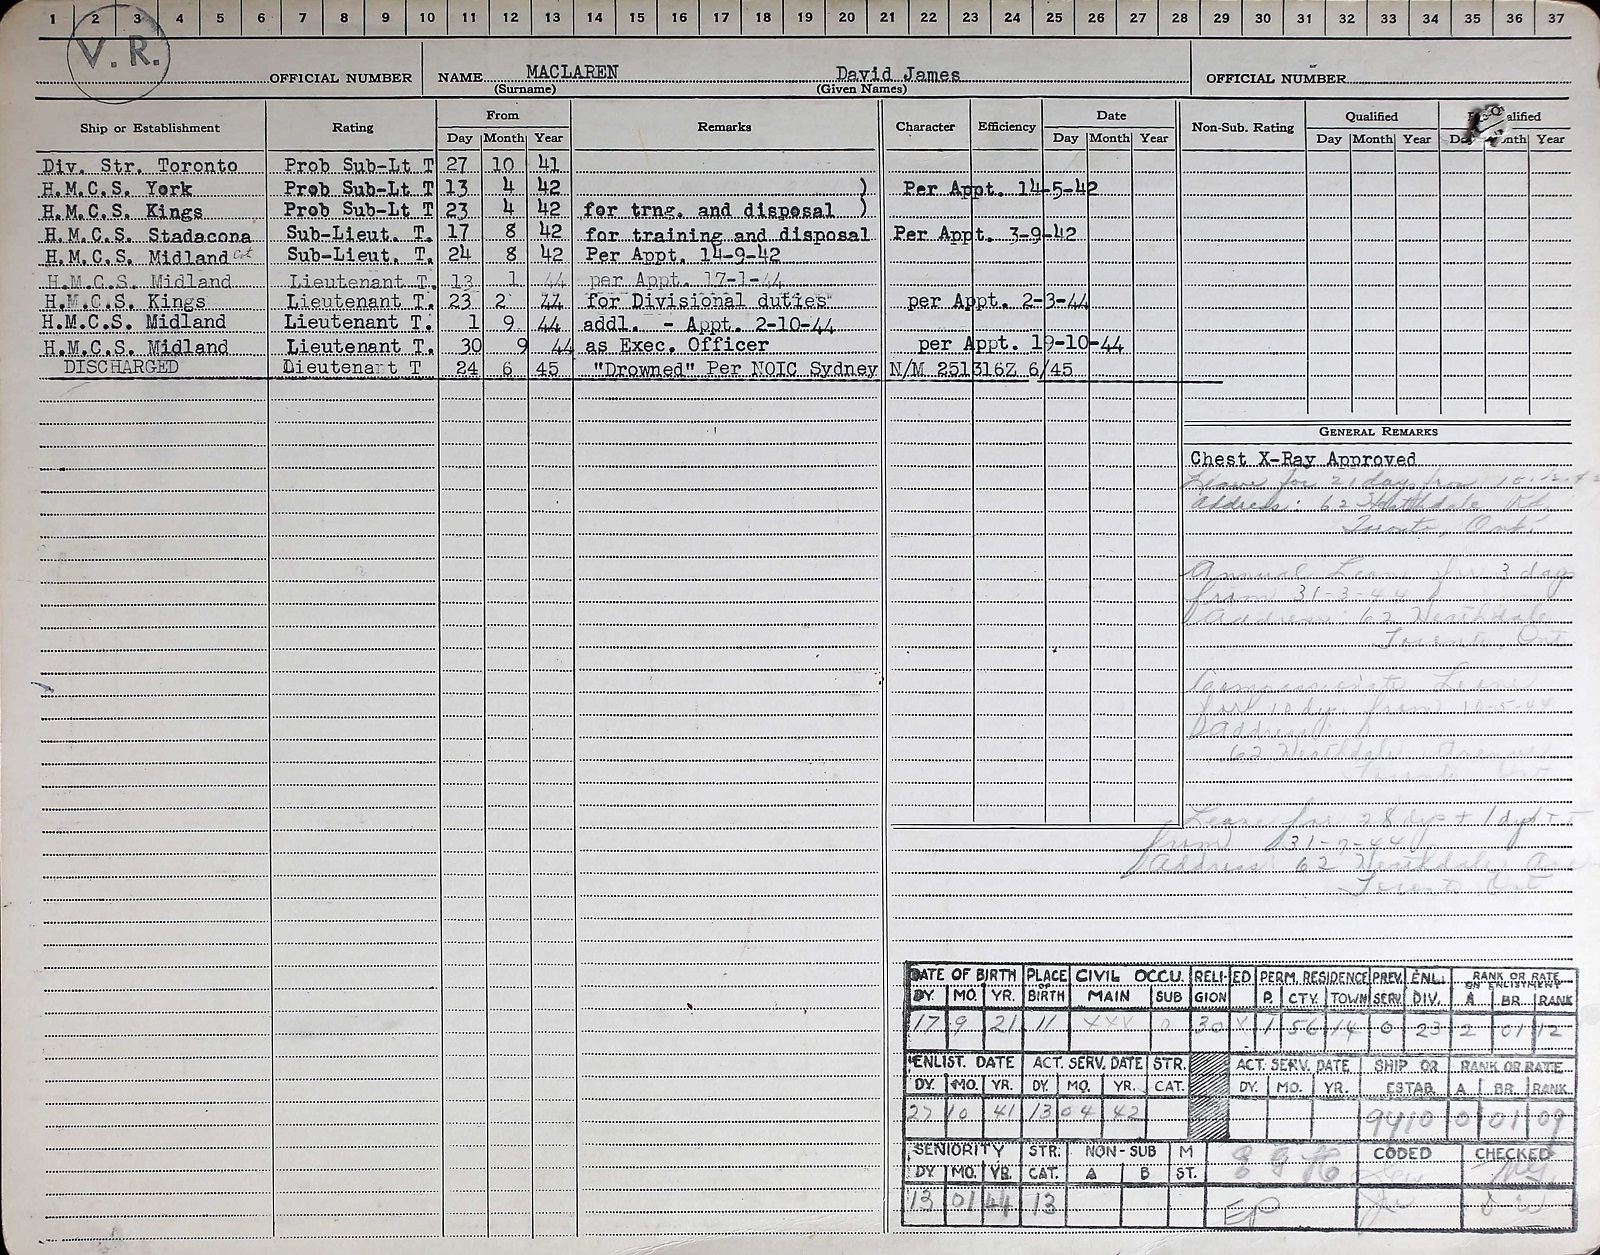 1 2 3 4 5 6 7 8 9 10 11 12 13 14 15 16 17 18 19 20 21 22 23 24 25 26 27 28 29 30 31 32 33 34 35 36 37
V. R.
OFFICIAL NUMBER NAME MACLAREN David James OFFICIAL NUMBER
(Surname) (Given Names)
Ship or Establishment Rating From Remarks Character Efficiency Date Non-Sub. Rating Qualified alified
Day Month Year Day Month Year Day Month Year Year
Div. Str. Toronto Prob Sub-Lt T 27 10 41
H.M.C.S. York Prob Sub-Lt T 13 4 42 ) Per Appt. 14-5-42
H.M.C.S. Kings Prob Sub-Lt T 23 4 42 for trng. and disposal )
H.M.C.S. Stadacona Sub-Lieut. T. 17 8 42 for training and disposal Per Appt. 3-9-42
H.M.C.S. Midland Sub-Lieut. T. 24 8 42 Per Appt. 14-9-42
H.M.C.S. Midland Lieutenant T. 13 1 44 per Appt. 17-1-44
H.M.C.S. Kings Lieutenant T. 23 2 44 for Divisional duties per Appt. 2-3-44
H.M.C.S. Midland Lieutenant T. 1 9 44 addl. - Appt. 2-10-44
H.M.C.S. Midland Lieutenant T. 30 9 44 as Exec. Officer per Appt. 19-10-44
DISCHARGED Lieutenant T 24 6 45 "Drowned" Per NOIC Sydney N/M 251316Z 6/45
GENERAL REMARKS
Chest X-Ray Approved
Leave for 21 days from 10-12-42
Address: 62 Heathdale Rd,
Toronto, Ont.
Annual Leave for 3 days
from 31-3-44
Address: 62 Heathdale
Toronto, Ont
Compassionate Leave
for 10 dys. from 10-5-44
Address:
62 Heathdale Avenue
Toronto Ont
Leave for 28 dys + 1 dy
from 31-7-44
Address 62 Heathdale Ave
Toronto Ont
DATE OF BIRTH PLACE OF BIRTH CIVIL OCCU. RELIGION ED PERM. RESIDENCE PREV. SERV. ENL. DIV. RANK OR RATE ON ENLISTMENT
DY. MO. YR. MAIN SUB P. CTY. TOWN A BR. RANK
17 9 21 11 XXX 0 30 1 56 14 0 23 2 01 12
ENLIST. DATE ACT. SERV. DATE STR. ACT. SERV. DATE SHIP OR RANK OR RATE
DY. MO. YR. DY. MO. YR. CAT. DY. MO. YR. ESTAB. A BR. RANK
27 10 41 13 04 42 9410 0 01 09
SENIORITY STR. NON-SUB M CODED CHECKED
DY MO. YR. CAT. A B ST.
13 01 44 13 EP